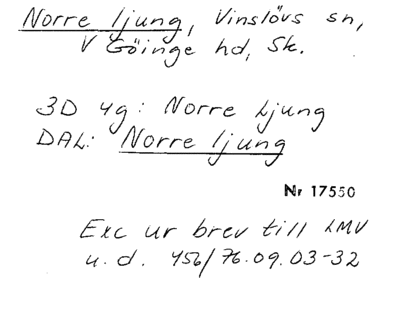 Norre ljung, Vinslövs sn,
V Göinge hd, Sk.
3D 4g: Norre Ljung
DAL: Norre ljung
Nr 17550
Exc ur brev till LMV
u.d. 456/76.09.03-32